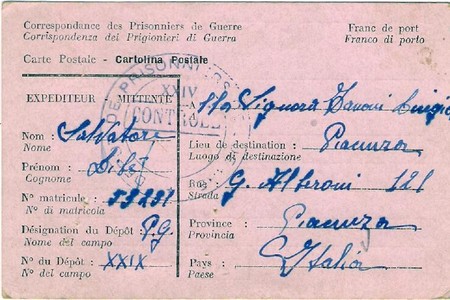 Correspondance des Prisonniers de Guerre
Corrispondenza dei Prigionieri di Guerra
Franc de port
Franco di porto
Carte Postale - Cartolina Postale
EXPEDITEUR MITTENTE
XXIV
CONTROLE
Signora
Nom : Salvatore
Nome
Prénom :
Cognome
N° matricule : 59291
N° di matricola
Désignation du Dépôt : P.G.
Nome del campo
N° du Dépôt : XXIX
N° del campo
Lieu de destination : Piacenza
Luogo di destinazione
Rue : G. Alberoni 121
Strada
Province : Piacenza
Provincia
Pays : Italia
Paese